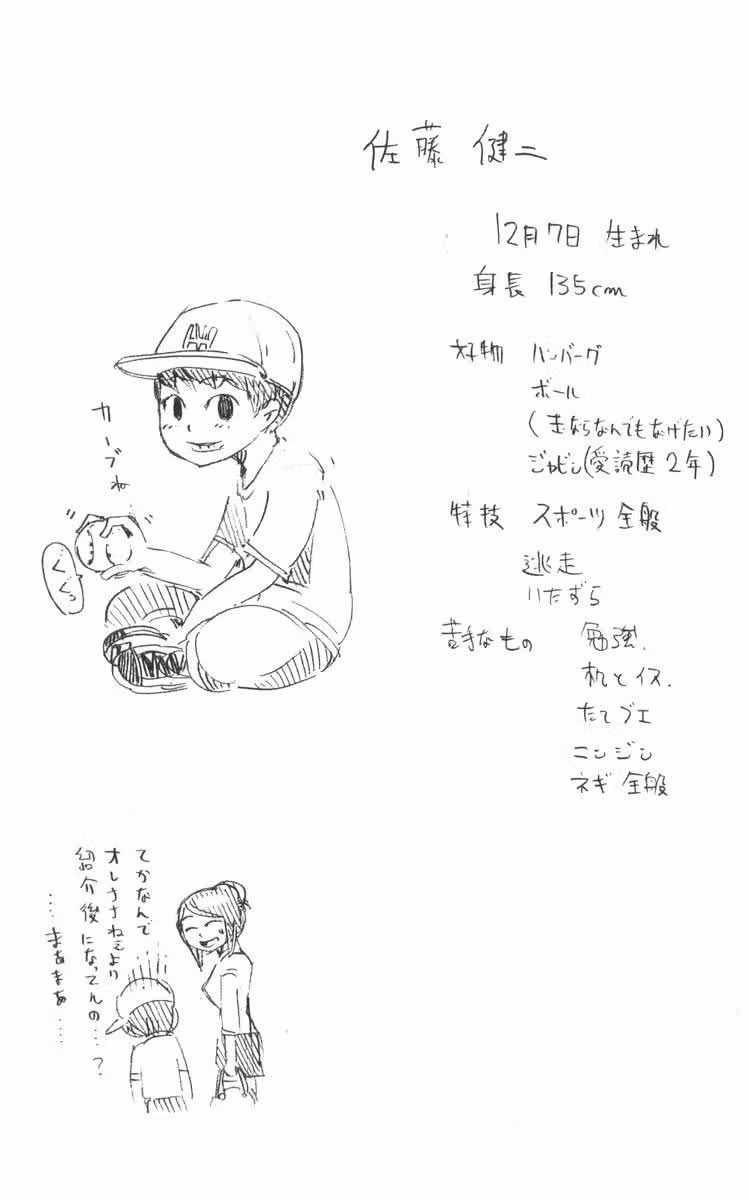 佐藤 健二
12月7日 生まれ
身長 135cm
好物 ハンバーグ
ボール
(まるならなんでもなげたい)
ジャビン(愛読歴2年)
特技 スポーツ全般
逃走
いたずら
苦手なもの 勉強.
机とイス.
たてブエ
ニンジン
ネギ全般
カーブね
くくっ
てかなんで
オレささねぇより
紹介後になってんの…?
……まぁまぁ……